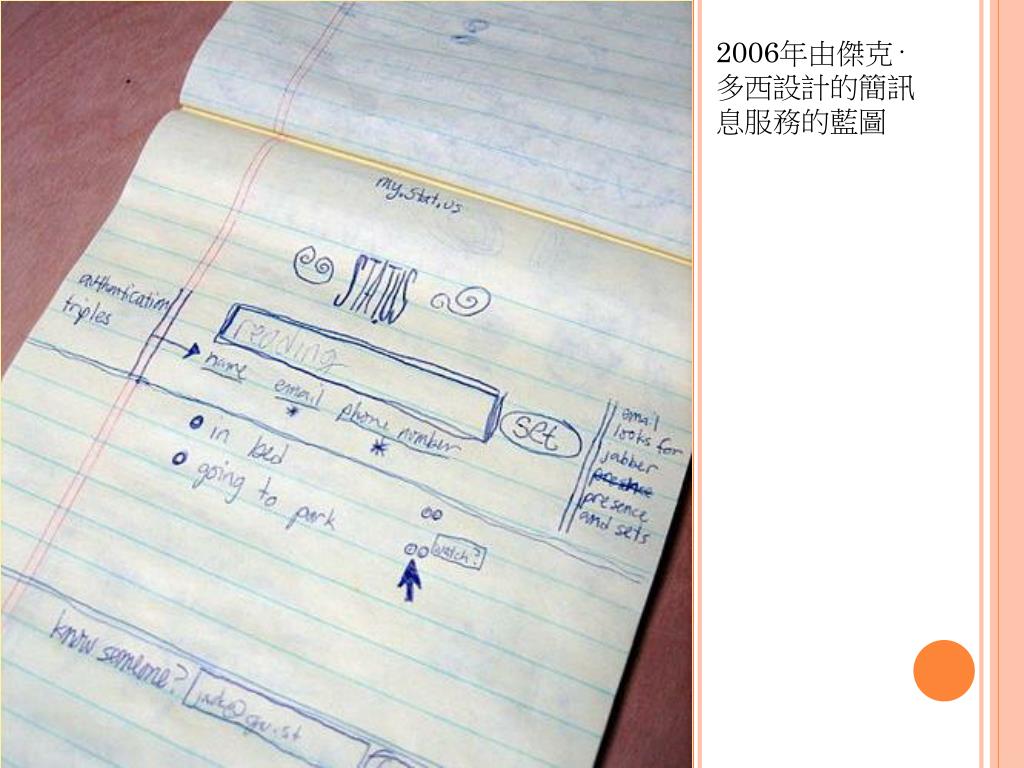 my.stat.us
STATUS
authentication
triples
reading
name email phone number
set
in bed
going to park
email
looks for
jabber
presence
and sets
watch?
know someone?
2006年由傑克·
多西設計的簡訊
息服務的藍圖